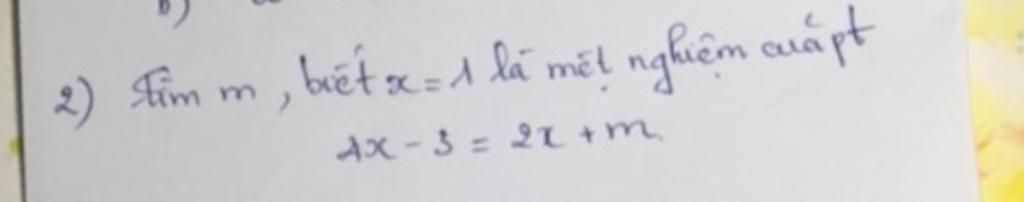 2) Tìm m, biết x = 1 là một nghiệm của pt
4x - 3 = 2x + m.